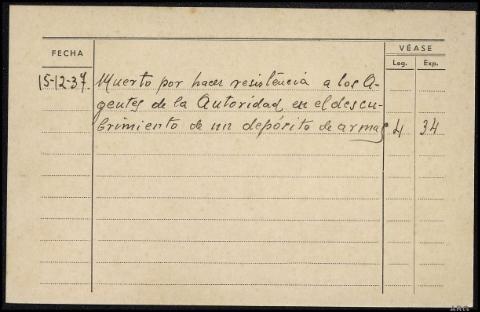 FECHA
VÉASE
Leg. Exp.
15-12-37. Muerto por hacer resistencia a los A-
gentes de la Autoridad, en el descu-
brimiento de un depósito de armas 4 34